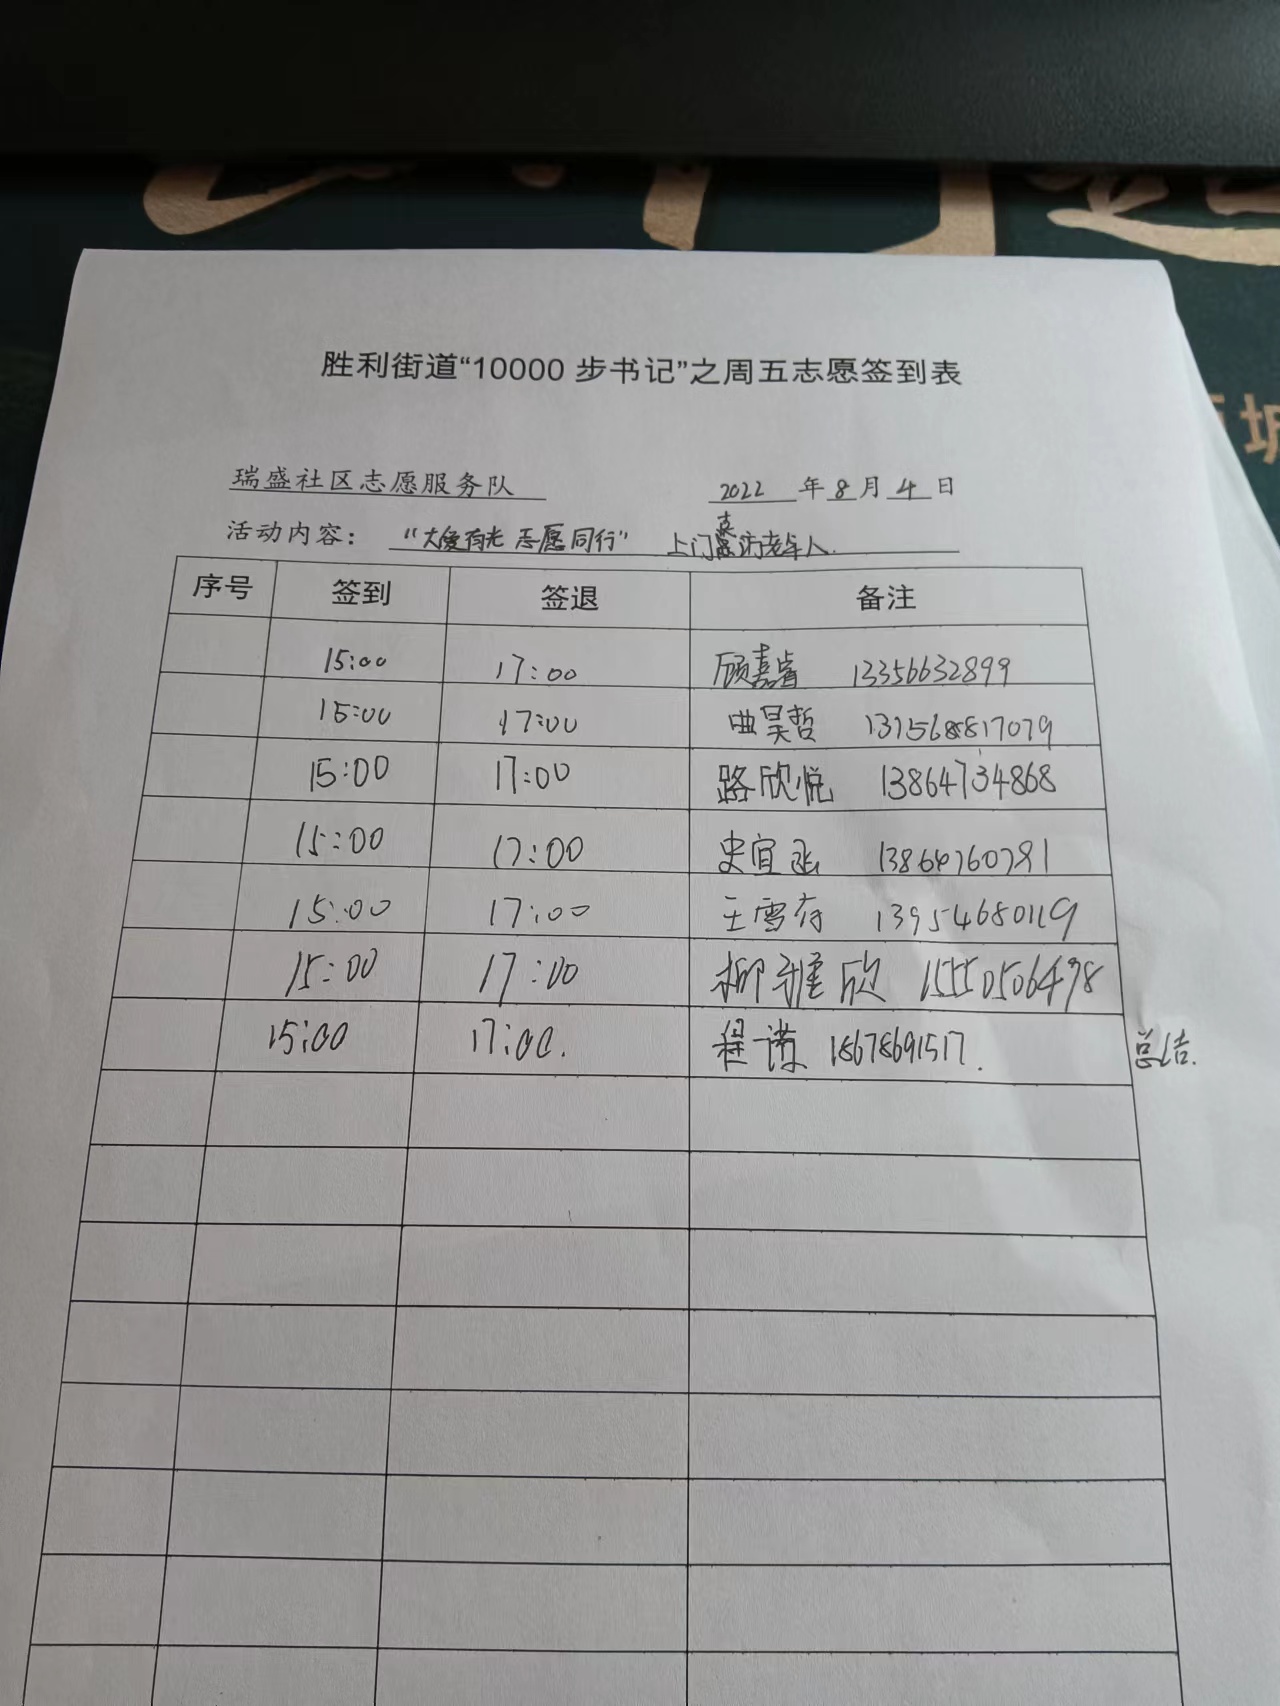 胜利街道“10000 步书记”之周五志愿签到表
瑞盛社区志愿服务队 2022 年 8 月 4 日
活动内容： “大爱有光 志愿同行” 上门 访老年人.
序号 签到 签退 备注
15:00 17:00 顾嘉睿 13356632899
15:00 17:00 曲昊哲
15:00 17:00 路欣悦 13864734868
15:00 17:00 史宜 13864760791
15:00 17:00 王雪 13954680119
15:00 17:00 柳雅欣 15550506498
15:00 17:00. 程谦 18678691517. 总结.